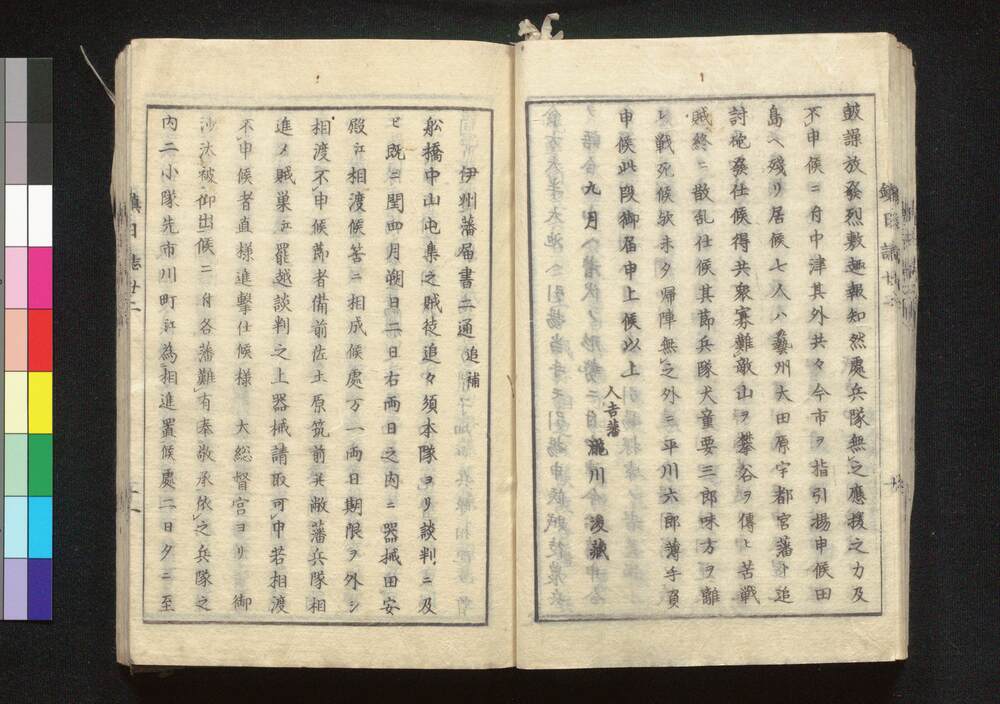 鼓譟放発烈敷趣報知然處兵隊無之應援之力及
不申候ニ付中津其外共々今市ヲ指引揚申候田
島ヘ残リ居候七人ハ藝州大田原宇都宮藩ト追
討砲発仕候得共衆寡難敵山ヲ攀谷ヲ傳ヒ苦戦
賊終ニ散乱仕候其節兵隊犬童要三郎味方ヲ離
レ戦死候欤未タ帰陣無之外ニ平川六郎薄手負
申候此段御届申上候以上
九月 人吉藩 瀧川俊蔵
鎮日誌廿二
伊州藩届書二通 追補
舩橋中山屯集之賊徒追々須本隊ヨリ談判ニ及
ヒ既ニ閏四月朔日二日右両日之内ニ器械田安
殿江相渡候筈ニ相成候處万一両日期限ヲ外シ
相渡不申候節者備前佐土原筑前並敝藩兵隊相
進メ賊巣江罷越談判之上器械請取可申若相渡
不申候者直様進撃仕候様 大総督宮ヨリ御
沙汰被御出候ニ付各藩難有奉敬承依之兵隊之
内二小隊先市川町江為相進置候處二日夕ニ至
鎮日誌廿二